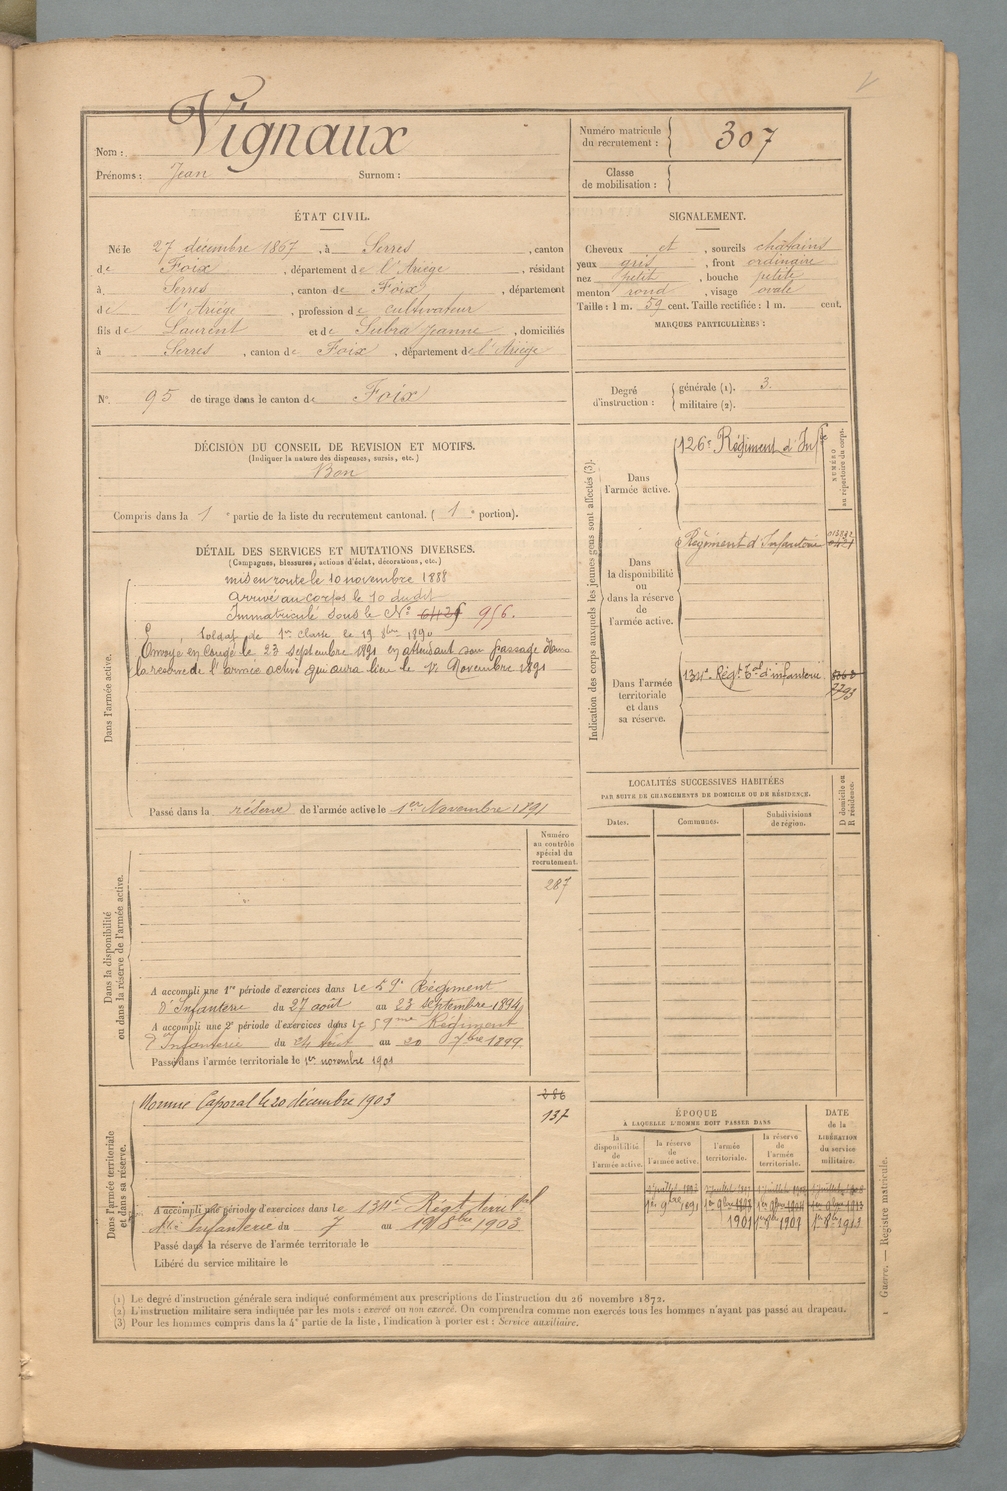 Nom : Vignaux
Prénoms : Jean Surnom :
Numéro matricule
du recrutement : 307
Classe
de mobilisation :
ÉTAT CIVIL.
Né le 27 décembre 1867, à Serres, canton
de Foix, département de l'Ariège, résidant
à Serres, canton de Foix, département
de l'Ariège, profession de cultivateur
fils de Laurent et de Subra Jeanne, domiciliés
à Serres, canton de Foix, département de l'Ariège
SIGNALEMENT.
Cheveux et, sourcils châtains
yeux gris, front ordinaire
nez petit, bouche petite
menton rond, visage ovale
Taille : 1 m. 59 cent. Taille rectifiée : 1 m. cent.
MARQUES PARTICULIÈRES :
N° 95 de tirage dans le canton de Foix
Degré
d'instruction :
générale (1). 3.
militaire (2).
DÉCISION DU CONSEIL DE REVISION ET MOTIFS.
(Indiquer la nature des dispenses, sursis, etc.)
Bon
Compris dans la 1e partie de la liste du recrutement cantonal. ( 1e portion).
DÉTAIL DES SERVICES ET MUTATIONS DIVERSES.
(Campagnes, blessures, actions d'éclat, décorations, etc.)
Dans l'armée active.
mis en route le 10 novembre 1888
arrivé au corps le 10 dudit
Immatriculé sous le N° 956.
Soldat de 1re classe le 19 8bre 1890
Envoyé en congé le 23 septembre 1891 en attendant son passage dans
la reserve de l'armée active qui aura lieu le 1er Novembre 1891
Passé dans la réserve de l'armée active le 1er Novembre 1891
Indication des corps auxquels les jeunes gens sont affectés (3).
NUMÉRO
au répertoire du corps.
Dans
l'armée active.
126e Régiment d'Infie
Dans
la disponibilité
ou
dans la réserve
de
l'armée active.
Régiment d'Infanterie
Dans l'armée
territoriale
et dans
sa réserve.
134e Régt Tal d'infanterie
7293
LOCALITÉS SUCCESSIVES HABITÉES
PAR SUITE DE CHANGEMENTS DE DOMICILE OU DE RÉSIDENCE.
Dates.
Communes.
Subdivisions
de région.
D domicile ou
R résidence.
Dans la disponibilité
ou dans la réserve de l'armée active.
Numéro
au contrôle
spécial du
recrutement.
287
A accompli une 1re période d'exercices dans le 59e Régiment
d'Infanterie du 27 août au 23 septembre 1894
A accompli une 2e période d'exercices dans le 59me Régiment
d'Infanterie du 24 août au 20 7bre 1899
Passé dans l'armée territoriale le 1er novembre 1901
Dans l'armée territoriale
et dans sa réserve.
Nommé Caporal le 20 décembre 1903
386
137
A accompli une période d'exercices dans le 134e Régt territal
d'Infanterie du 7 au 19 8bre 1903
Passé dans la réserve de l'armée territoriale le
Libéré du service militaire le
ÉPOQUE
À LAQUELLE L'HOMME DOIT PASSER DANS
DATE
de la
LIBÉRATION
du service
militaire.
la
disponibilité
de
l'armée active.
la réserve
de
l'armée active.
l'armée
territoriale.
la réserve
de
l'armée
territoriale.
1er 9bre 1891
1901 1er 8bre 1907 1er 8bre 1913
(1) Le degré d'instruction générale sera indiqué conformément aux prescriptions de l'instruction du 26 novembre 1872.
(2) L'instruction militaire sera indiquée par les mots : exercé ou non exercé. On comprendra comme non exercés tous les hommes n'ayant pas passé au drapeau.
(3) Pour les hommes compris dans la 4e partie de la liste, l'indication à porter est : Service auxiliaire.
1 Guerre. — Registre matricule.